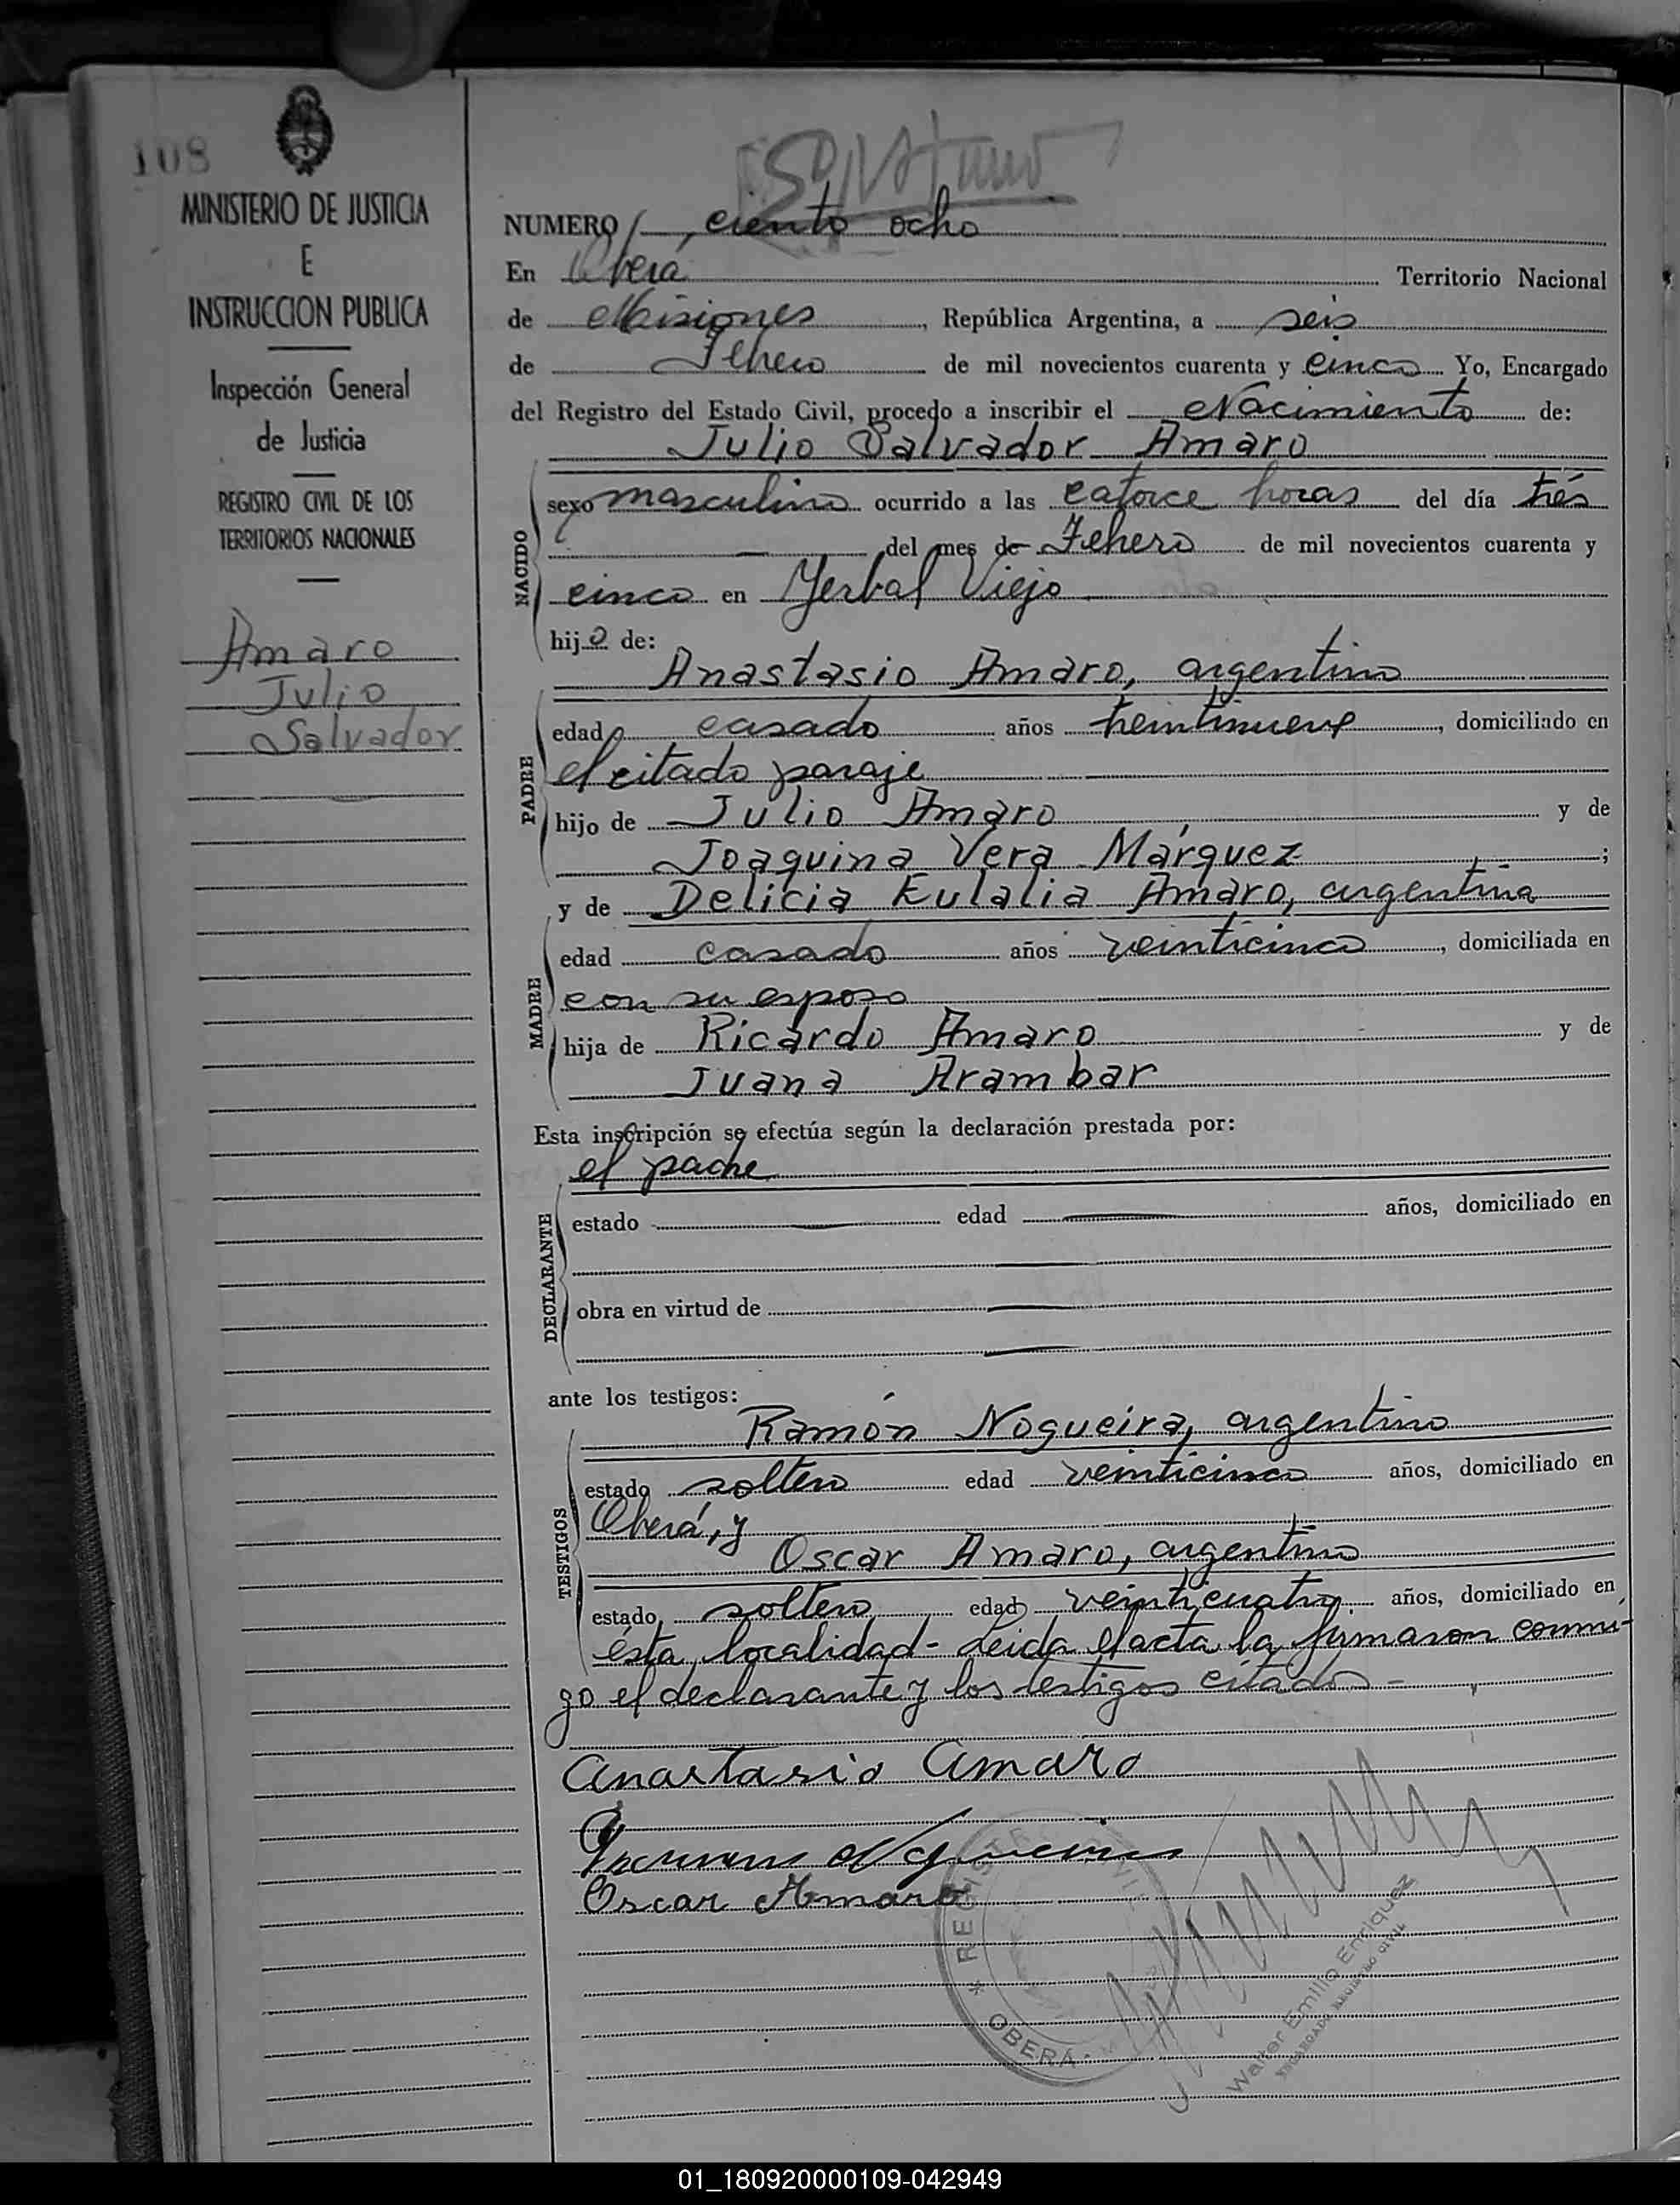 108
MINISTERIO DE JUSTICIA
E
INSTRUCCION PUBLICA
Inspección General
de Justicia
REGISTRO CIVIL DE LOS
TERRITORIOS NACIONALES
Amaro
Julio
Salvador
NUMERO ciento ocho
En Oberá Territorio Nacional
de Misiones, República Argentina, a seis
de Febrero de mil novecientos cuarenta y cinco Yo, Encargado
del Registro del Estado Civil, procedo a inscribir el Nacimiento de:
Julio Salvador Amaro
NACIDO
sexo masculino ocurrido a las catorce horas del día trés
del mes de Febrero de mil novecientos cuarenta y
cinco en Yerbal Viejo
hijo de:
Anastasio Amaro, argentino
PADRE
edad casado años treintinueve, domiciliado en
el citado paraje
hijo de Julio Amaro y de
Joaquina Vera Márquez;
y de Delicia Eulalia Amaro, argentina
MADRE
edad casado años veinticinco, domiciliada en
con su esposo
hija de Ricardo Amaro y de
Juana Arambar
Esta inscripción se efectúa según la declaración prestada por:
el padre
DECLARANTE
estado edad años, domiciliado en
obra en virtud de
ante los testigos:
Ramón Nogueira, argentino
TESTIGOS
estado soltero edad veinticinco años, domiciliado en
Oberá, y
Oscar Amaro, argentino
estado soltero edad veinticuatro años, domiciliado en
ésta localidad- Leida el acta la firmaron conmi-
go el declarante y los testigos citados-
Anastasio Amaro
Oscar Amaro
REGISTRO CIVIL
OBERÁ
Walter Emilio Enriquez
ENCARGADO REGISTRO CIVIL
01_180920000109-042949